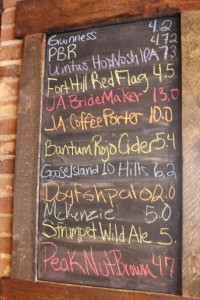 Guinness 4.2
PBR 4.72
Uintas Hop Nosh IPA 7.3
Fort Hill Red Flag 4.5
J.A. Bride Maker 13.0
J.A. Coffee Porter 10.0
Bantum Rojo Cider 5.4
Goose Island IO Hills 6.2
Dogfish palo 12.0
McKenzie 5.0
Strumpet Wild Ale 5.
Peak Nut Brown 4.7